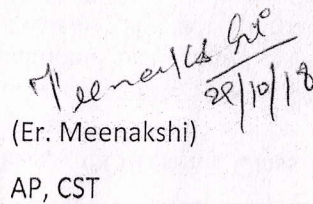 Meenakshi
22/10/18
(Er. Meenakshi)
AP, CST